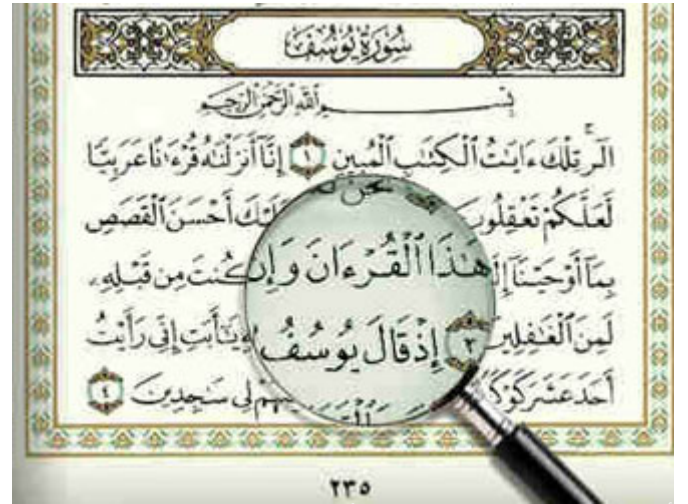 سُورَةُ يُوسُفَ
بِسْمِ ٱللَّهِ ٱلرَّحْمَٰنِ ٱلرَّحِيمِ
الٓر تِلْكَ ءَايَٰتُ ٱلْكِتَٰبِ ٱلْمُبِينِ ١ إِنَّآ أَنزَلْنَٰهُ قُرْءَٰنًا عَرَبِيًّا
لَّعَلَّكُمْ تَعْقِلُونَ نَحْنُ عَلَيْكَ أَحْسَنَ ٱلْقَصَصِ
بِمَآ أَوْحَيْنَآ هَٰذَا ٱلْقُرْءَانَ وَإِن كُنتَ مِن قَبْلِهِۦ
لَمِنَ ٱلْغَٰفِلِينَ ٣ إِذْ قَالَ يُوسُفُ يَٰٓأَبَتِ إِنِّى رَأَيْتُ
أَحَدَ عَشَرَ كَوْكَبًا لِى سَٰجِدِينَ ٤
٢٣٥